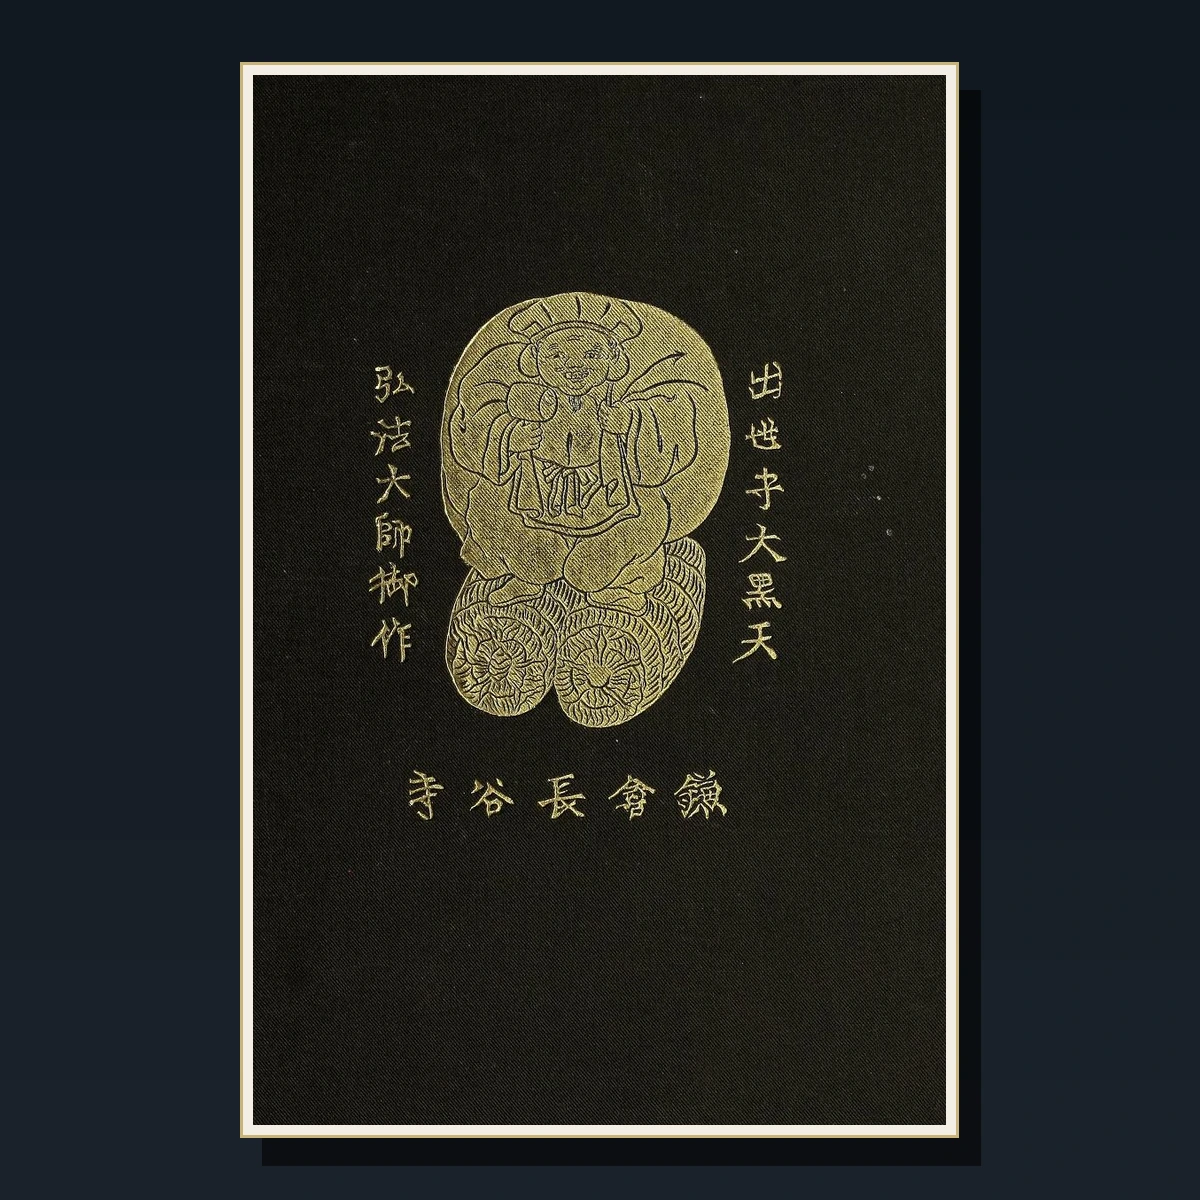 出世大黒天
弘法大師御作
鎌倉長谷寺